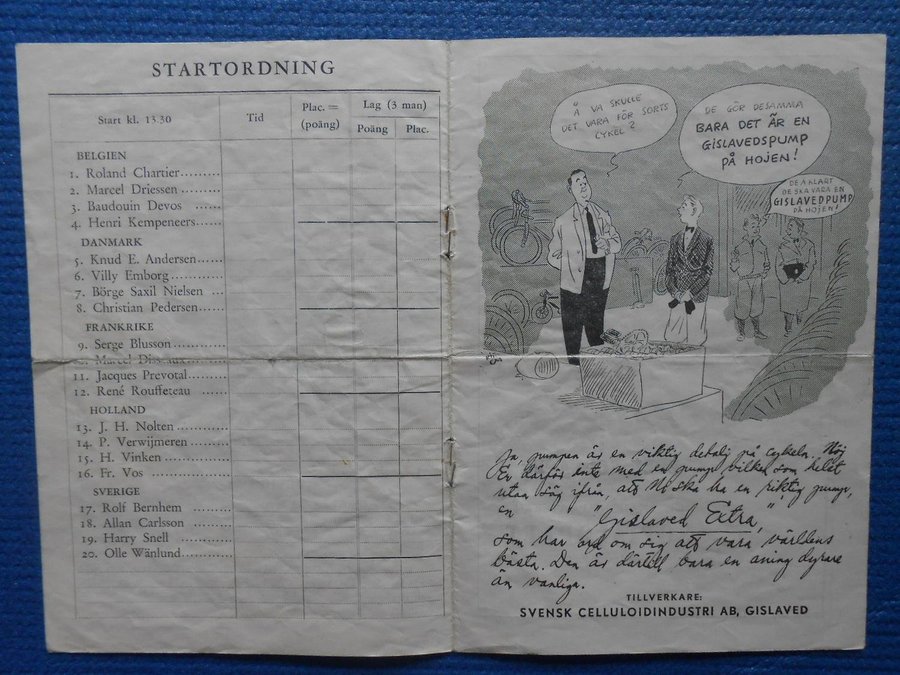 STARTORDNING
Start kl. 13.30
Tid
Plac. =
(poäng)
Lag (3 man)
Poäng
Plac.
BELGIEN
1. Roland Chartier..........
2. Marcel Driessen..........
3. Baudouin Devos ......
4. Henri Kempeneers......
DANMARK
5. Knud E. Andersen......
6. Villy Emborg............
7. Börge Saxil Nielsen ...
8. Christian Pedersen......
FRANKRIKE
9. Serge Blusson............
Marcel
11. Jacques Prevotal.........
12. René Rouffeteau ......
HOLLAND
13. J. H. Nolten ............
14. P. Verwijmeren .........
15. H. Vinken ...............
16. Fr. Vos ..................
SVERIGE
17. Rolf Bernhem .........
18. Allan Carlsson .........
19. Harry Snell ............
20. Olle Wänlund............
Å VA SKULLE
DET VARA FÖR SORTS
CYKEL?
DE GÖR DESAMMA
BARA DET ÄR EN
GISLAVEDSPUMP
PÅ HOJEN!
DE Ä KLART
DE SKA VARA EN
GISLAVEDPUMP
PÅ HOJEN!
Ja, pumpen är en viktig detalj på cykeln. Nöj
Er därför inte med en pump vilken som helst
utan säg ifrån, att Ni ska ha en riktig pump,
en
"Gislaved Extra,"
som har ord om sig att vara världens
bästa. Den är därtill bara en aning dyrare
än vanliga.
TILLVERKARE:
SVENSK CELLULOIDINDUSTRI AB, GISLAVED